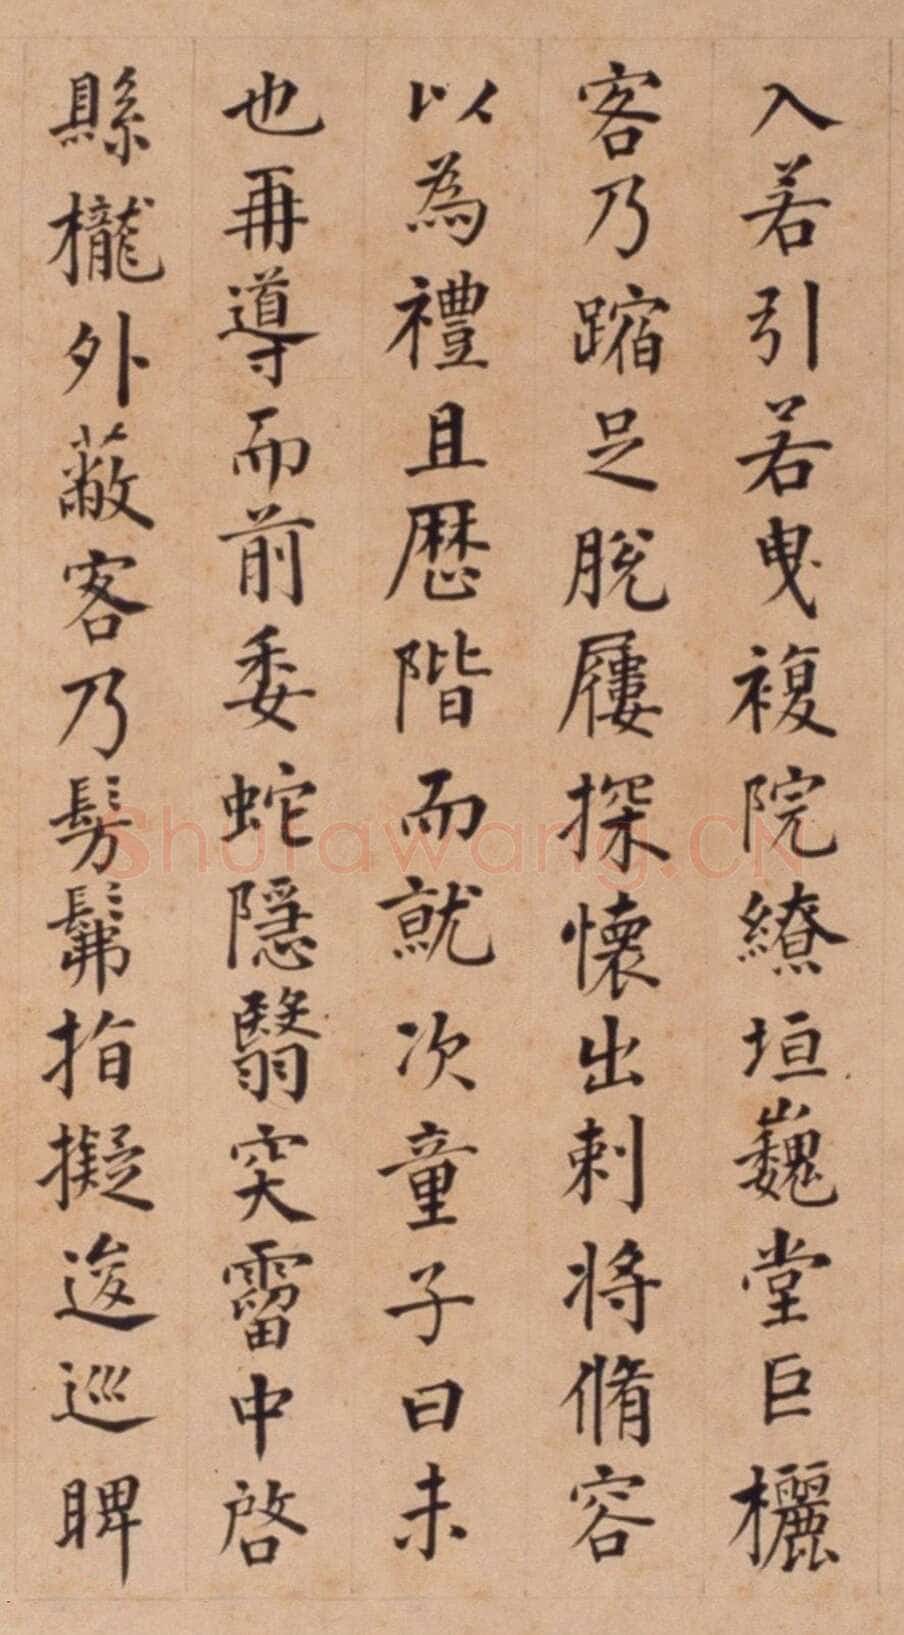 入若引若曳複院繚垣巍堂巨欐
客乃蹜足脫屨探懷出刺將脩容
以為禮且歷階而就次童子曰未
也再導而前委蛇隱翳穾霤中啓
縣櫳外蔽客乃髣髴指擬逡巡睥
Shufawang.CN